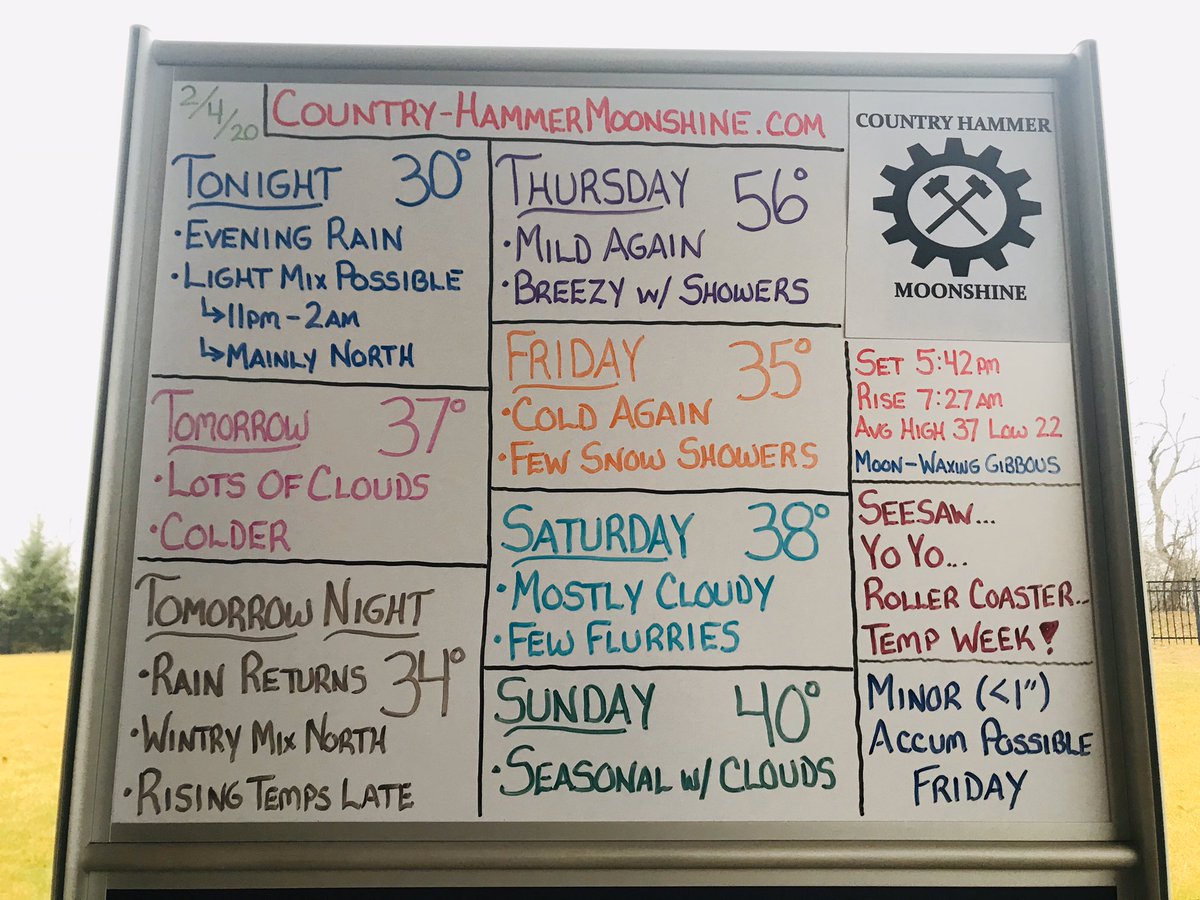 2/4/20
COUNTRY-HAMMERMOONSHINE.COM
TONIGHT 30°
•EVENING RAIN
•LIGHT MIX POSSIBLE
↳11PM-2AM
↳MAINLY NORTH
TOMORROW 37°
•LOTS OF CLOUDS
•COLDER
TOMORROW NIGHT
•RAIN RETURNS 34°
•WINTRY MIX NORTH
•RISING TEMPS LATE
THURSDAY 56°
•MILD AGAIN
•BREEZY W/ SHOWERS
FRIDAY 35°
•COLD AGAIN
•FEW SNOW SHOWERS
SATURDAY 38°
•MOSTLY CLOUDY
•FEW FLURRIES
SUNDAY 40°
•SEASONAL W/ CLOUDS
COUNTRY HAMMER
MOONSHINE
SET 5:42 PM
RISE 7:27 AM
AVG HIGH 37 LOW 22
MOON-WAXING GIBBOUS
SEESAW...
YO YO...
ROLLER COASTER...
TEMP WEEK!
MINOR (<1")
ACCUM POSSIBLE
FRIDAY